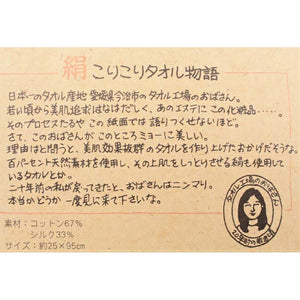 絹 こりこりタオル物語
日本一のタオル産地 愛媛県今治市のタオル工場のおばさん。
若い頃から美肌追求はなはだしく、あのエステにこの化粧品……。
そのプロセスたるや この紙面では語りつくせないほど。
さて、このおばさんが このところミョーに美しい。
理由はと問うと、美肌効果抜群のタオルを作り上げたおかげだそうな。
百パーセント天然素材を使用し、その上肌をしっとりさせる絹も使用し
ているタオルとか。
二十年前の私が戻ってきたと、おばさんはニンマリ。
本当かどうか 一度見に来て下さいな。
素材：コットン67%
シルク33%
サイズ：約25×95cm
タオル工場のおばさん